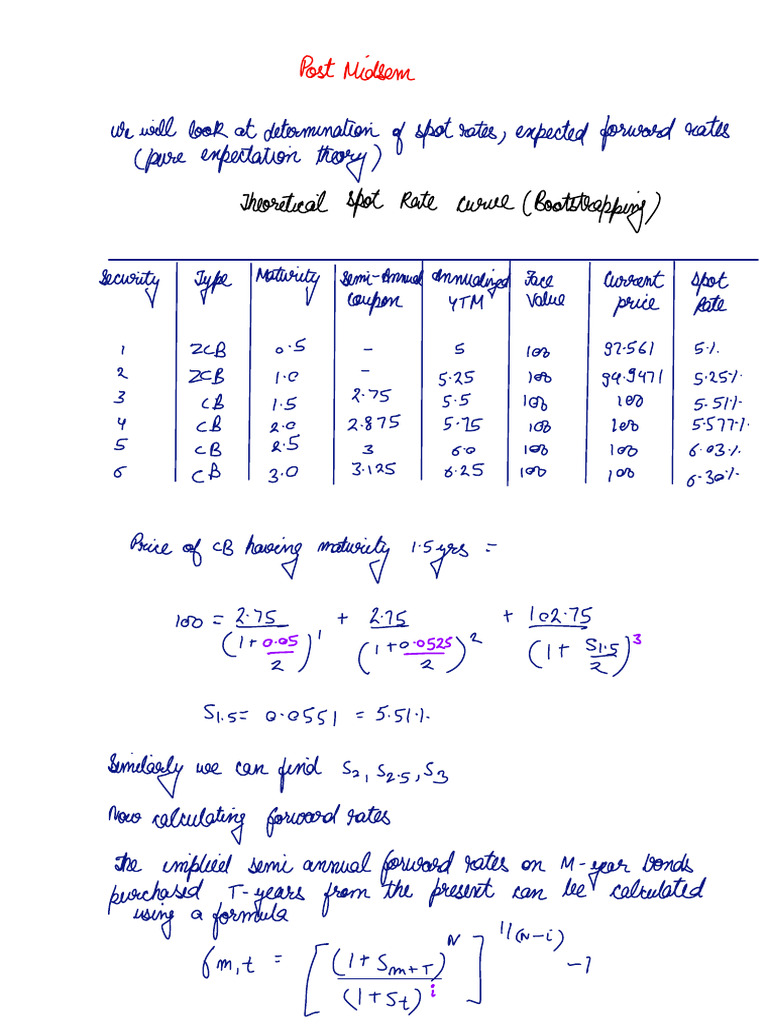 Post Midsem
We will look at determination of spot rates, expected forward rates
(pure expectation theory)
Theoretical Spot Rate Curve (Bootstrapping)
Security Type Maturity Semi-Annual Coupon Annualized YTM Face Value Current price Spot Rate
1 ZCB 0.5 - 5 100 97.561 5%
2 ZCB 1.0 - 5.25 100 94.9471 5.25%
3 CB 1.5 2.75 5.5 100 100 5.51%
4 CB 2.0 2.875 5.75 100 100 5.577%
5 CB 2.5 3 6.0 100 100 6.03%
6 CB 3.0 3.125 6.25 100 100 6.30%
Price of CB having maturity 1.5 yrs =
100 = 2.75/(1+0.05/2)^1 + 2.75/(1+0.0525/2)^2 + 102.75/(1+S1.5/2)^3
S1.5 = 0.0551 = 5.51%
Similarly we can find S2, S2.5, S3
Now calculating forward rates
The implied semi annual forward rates on M-year bonds
purchased T-years from the present can be calculated
using a formula
f m,t = [(1+S m+T)^N/(1+St)^i]^1/(N-i) -1